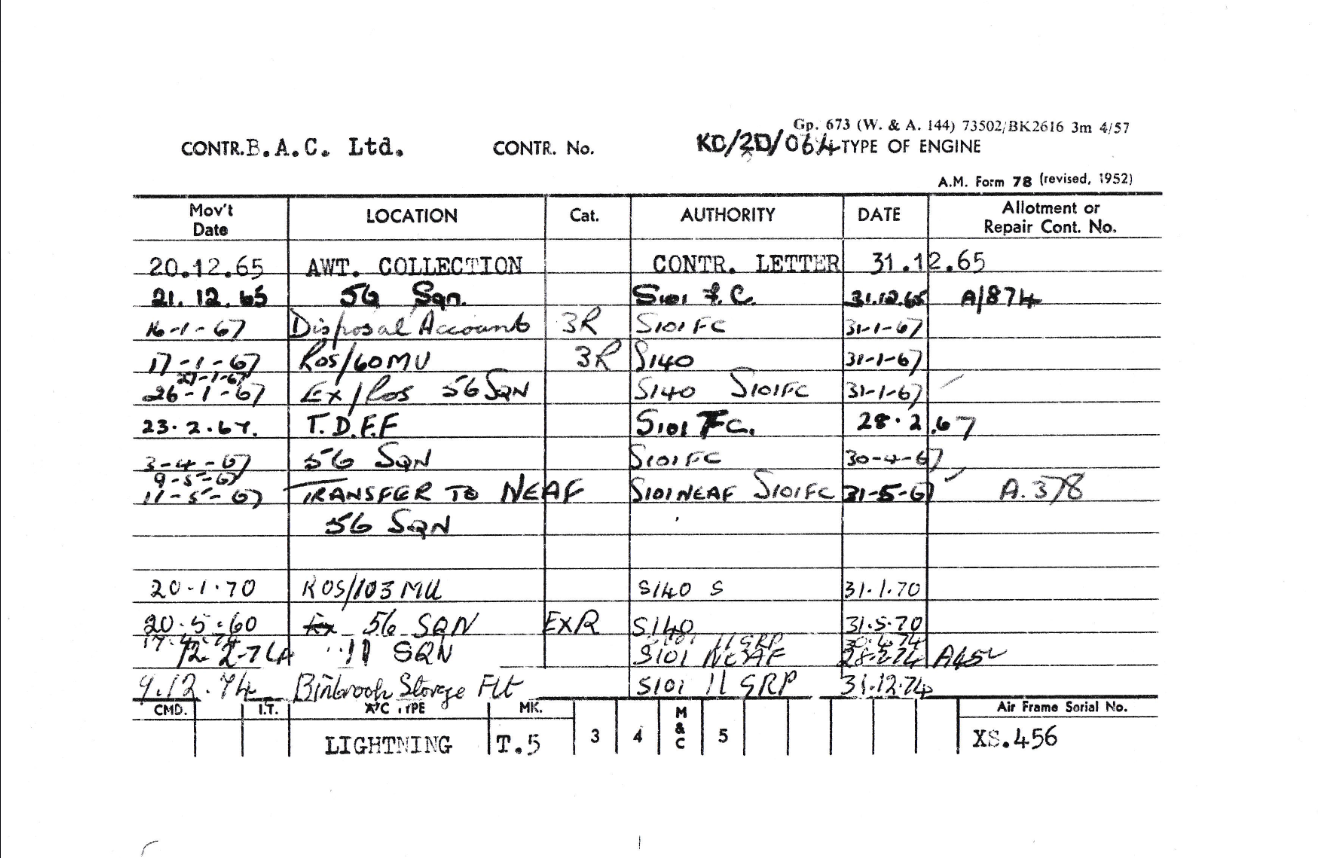 Gp. 673 (W. & A. 144) 73502/BK2616 3m 4/57
CONTR. B.A.C. Ltd. CONTR. No. KD/2D/064 TYPE OF ENGINE
A.M. Form 78 (revised, 1952)
Mov't Date LOCATION Cat. AUTHORITY DATE Allotment or Repair Cont. No.
20.12.65 AWT. COLLECTION CONTR. LETTER 31.12.65
21.12.65 56 Sqn. S101 F.C. 31.12.65 A/874
16-1-67 Disposal Account 3R S101FC 31-1-67
17-1-67 ROS/60MU 3R S140 31-1-67
27-1-67
26-1-67 Ex/Ros 56 SQN S140 S101FC 31-1-67
23.2.67. T.D.F.F S101 FC. 28.2.67
3-4-67 56 SQN S101FC 30-4-67
9-5-67
11-5-67 TRANSFER TO NEAF S101NEAF S101FC 31-5-67 A.378
56 SQN
20.1.70 ROS/103 MU S140 S 31.1.70
20.5.60 Ex 56 SQN EXR S140 31.5.70
S101 11 GRP
12.2.74 11 SQN S101 NEAF 28.2.74
9.12.74 Binbrook Storage Flt S101 11 GRP 31.12.74
CMD. I.T. A/C TYPE MK. 3 4 M & C 5 Air Frame Serial No.
LIGHTNING T.5 XS.456